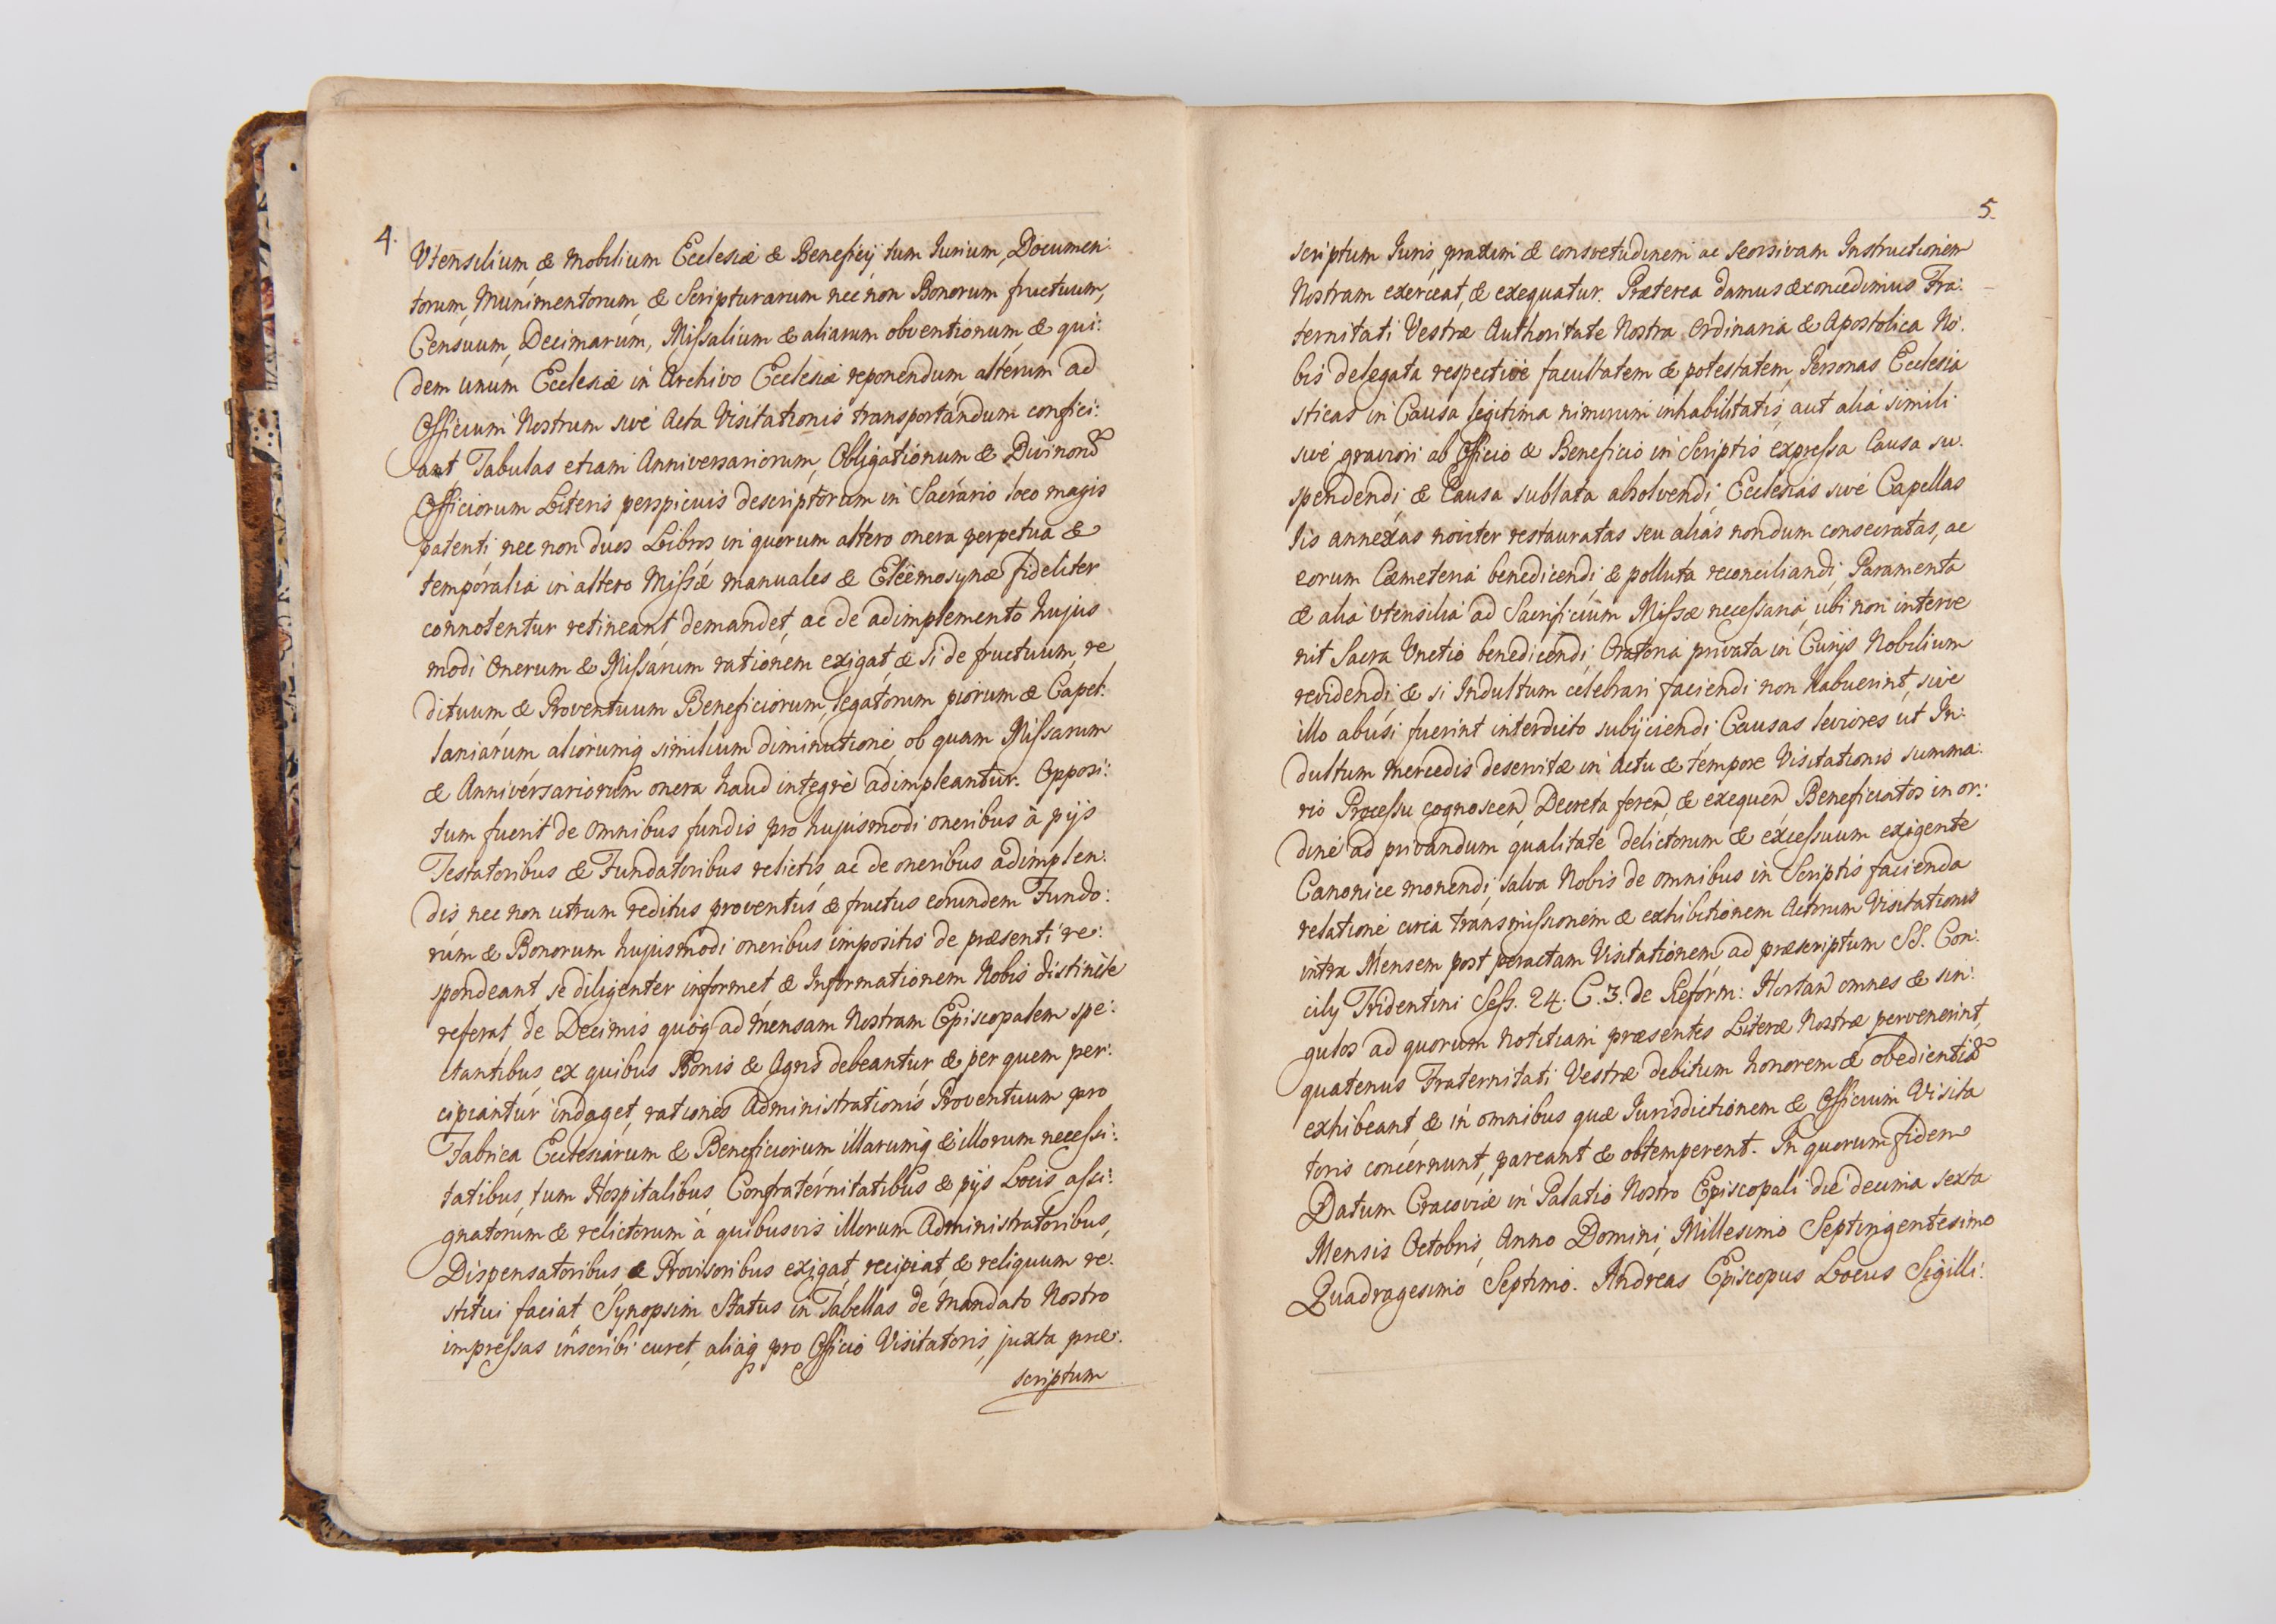 4.
Vtensilium & Mobilium Ecclesiæ & Beneficij tum Iurium, Documen:
torum, Munimentorum, & Scripturarum nec non Bonorum fructuum,
Censuum, Decimarum, Missalium & aliarum obventionum & qui:
dem unum Ecclesiæ in Archivo Ecclesiæ reponendum alterum ad
Officium Nostrum sivè Acta Visitationis transportandum confici:
ant, Tabulas etiam Anniversariorum, Obligationum & Divinorũ
Officiorum Literis perspicuis descriptorum in Sacrario loco magis
patenti nec non duos Libros in quorum altero onera perpetua &
temporalia in altero Missæ manuales & Eleëmosynæ fideliter
connotentur retineant demandet, ac de adimplemento hujus
modi Onerum & Missarum rationem exigat, & si de fructuum, re
dituum & Proventuum Beneficiorum, legatorum piorum & Capel:
laniarum aliorumq similium diminutione, ob quam Missarum
& Anniversariorum onera haud integrè adimpleantur. Opposi:
tum fuerit de omnibus fundis pro hujusmodi oneribus à pijs
Testatoribus & Fundatoribus relictis ac de oneribus adimplen:
dis nec non utrum reditus proventus & fructus eorundem Fundo:
rum & Bonorum hujusmodi oneribus impositis de præsenti re:
spondeant, se diligenter informet, & Informationem Nobis distincte
referat, de Decimis quoq ad Mensam Nostram Episcopalem spe:
ctantibus, ex quibus Bonis & Agris debeantur, & per quem per:
cipiantur indaget, rationes Administrationis Proventuum pro
Fabrica Ecclesiarum & Beneficiorum illarumq & illorum necessi:
tatibus, tum Hospitalibus, Confraternitatibus & pijs Locis assi:
gnatorum & relictorum à quibusvis illorum Administratoribus,
Dispensatoribus, & Provisoribus exigat, recipiat, & reliquum re.
stitui faciat, Synopsim Status in Tabellas de Mandato Nostro
impressas inscribi curet, aliaq pro Officio Visitatoris, juxta præ.
scriptum
5.
scriptum Iuris, praxim & consvetudinem ac seorsivam Instructionem
Nostram exerceat, & exequatur. Præterea damus & concedimus Fra:
ternitati Vestræ Authoritate Nostra Ordinaria & Apostolica No:
bis delegata respectivè facultatem & potestatem, Personas Ecclesia
sticas in Causa legitima nimirum inhabilitatis, aut alia simili
sivè graviori ab Officio & Beneficio in Scriptis expressa Causa su.
spendendi, & Causa sublata absolvendi, Ecclesias sivè Capellas
Iis annexas noviter restauratas seu alias nondum consecratas, ac
eorum Cæmeteria benedicendi & polluta reconciliandi, Paramenta
& alia Vtensilia ad Sacrificium Missæ necessaria, ubi non interve
nit Sacra Unctio benedicendi, Oratoria privata in Curijs Nobilium
revidendi, & si Indultum celebrari faciendi non habuerint, sivè
illo abusi fuerint interdicto subijciendi Causas leviores ut In:
dultum Mercedis deservitæ in Actu & tempore Visitationis summa:
rio Processu cognoscend, Decreta ferend, & exequend Beneficiatos in or:
dine ad privandum qualitate delictorum & excessuum exigente
Canonice monendi, salva Nobis de omnibus in Scriptis facienda
relatione circa transmissionem & exhibitionem Actorum Visitationis
intra Mensem post peractam Visitationem, ad præscriptum SS. Con:
cilij Tridentini Sess. 24. C. 3. de Reform: Hortand omnes & sin:
gulos ad quorum Notitiam præsentes Literæ Nostræ pervenerint,
quatenus Fraternitati Vestræ debitum honorem & obedientiã
exhibeant, & in omnibus quæ Iurisdictionem & Officium Visita
toris concernunt, pareant & obtemperent. In quorum fidem
Datum Cracoviæ in Palatio Nostro Episcopali die decima sexta
Mensis Octobris, Anno Domini, Millesimo Septingentesimo
Quadragesimo Septimo. Andreas Episcopus Locus Sigilli: